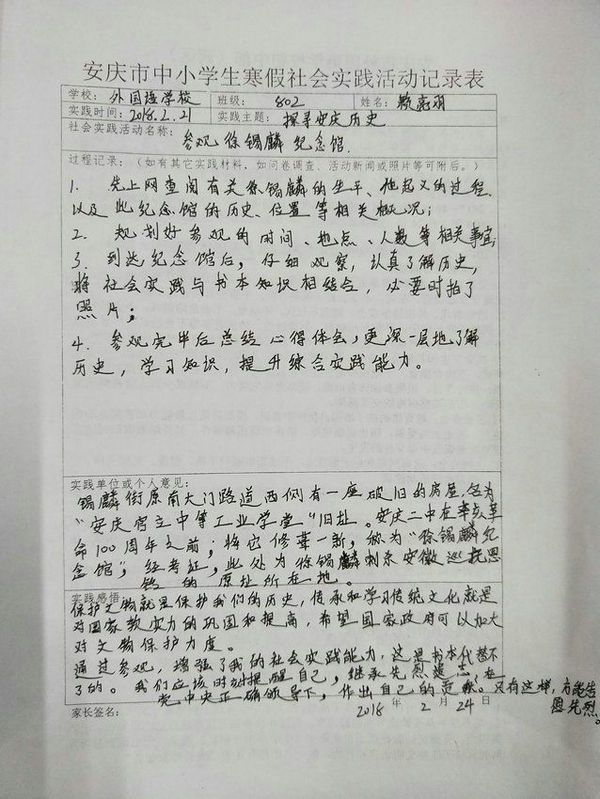 安庆市中小学生寒假社会实践活动记录表
学校： 外国语学校 班级： 802 姓名：
实践时间：2018.2.21 实践主题： 探寻安庆历史
社会实践活动名称： 参观徐锡麟纪念馆.
过程记录：（如有其它实践材料，如问卷调查、活动新闻或照片等可附后。）
1. 先上网查阅有关徐锡麟的生平、他起义的过程
以及此纪念馆的历史、位置等相关概况；
2. 规划好参观的时间、地点、人数等相关事宜
3. 到达纪念馆后，仔细观察，认真了解历史，
将社会实践与书本知识相结合，必要时拍了
照片；
4. 参观完毕后总结心得体会，更深一层地了解
历史，学习知识，提升综合实践能力。
实践单位或个人意见：
锡麟街原南大门路道西侧有一座破旧的房屋，名为
“安庆官立中等工业学堂”旧址。安庆二中在辛亥革
命100周年之前；将它修葺一新，称为“徐锡麟纪
念馆”，经考证，此处为徐锡麟刺杀安徽巡抚恩
铭的原址所在地。
实践感悟：
保护文物就是保护我们的历史，传承和学习传统文化就是
对国家软实力的巩固和提高，希望国家政府可以加大
对文物保护力度。
通过参观，增强了我的社会实践能力，这是书本代替不
了的。我们应该时刻提醒自己，继承先烈遗志，在
党中央正确领导下，作出自己的贡献。只有这样，方能告
慰先烈。
家长签名： 2018年2月24日